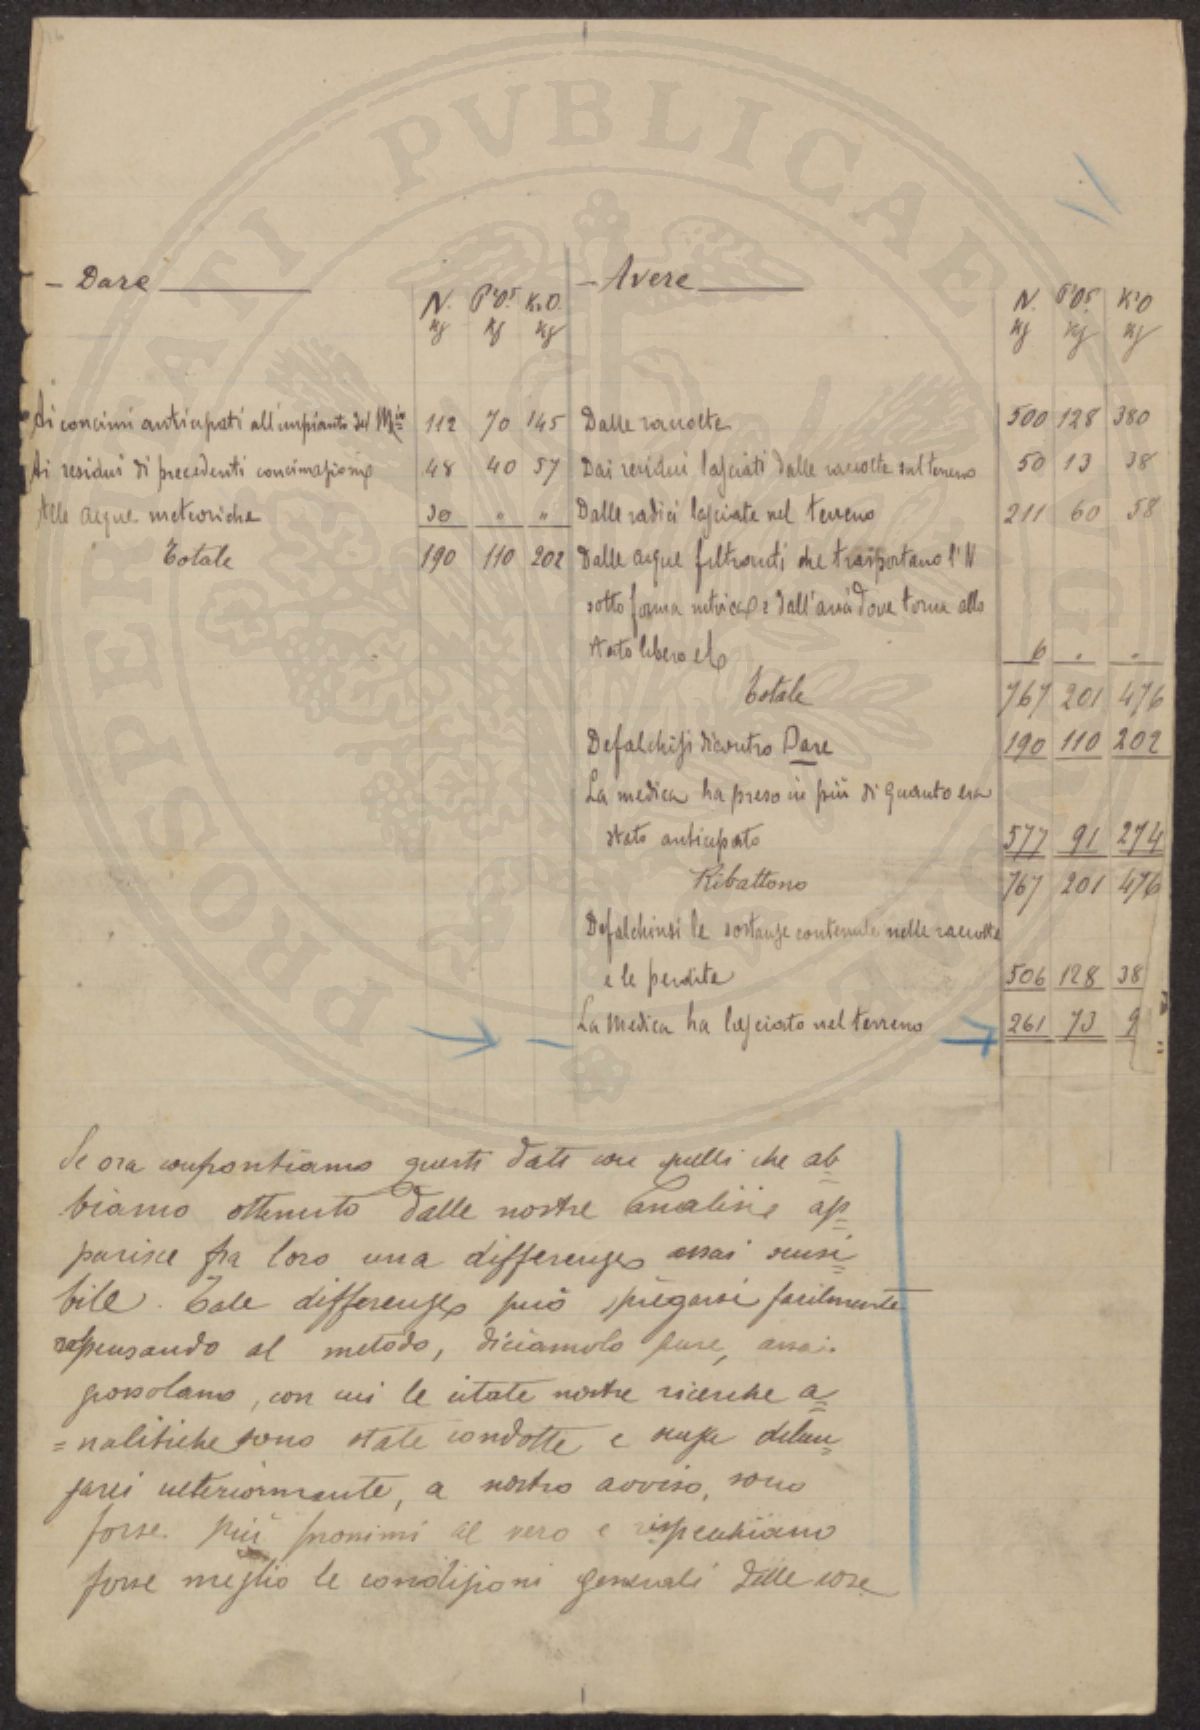 16
PROSPERITATI PVBLICAE AVGENDAE
– Dare
N. P²O⁵ K²O
kg kg kg
Ai concimi anticipati all'impianto del M^io 112 70 145
Ai residui di precedenti concimazioni 48 40 57
Alle acque meteoriche 30 " "
Totale 190 110 202
– Avere
N. P²O⁵ K²O
kg kg kg
Dalle raccolte 500 128 380
Dai residui lasciati dalle raccolte sul terreno 50 13 38
Dalle radici lasciate nel terreno 211 60 58
Dalle acque filtranti che trasportano l'N
sotto forma nitrica e dall'aria dove torna allo
stato libero 6 . .
Totale 767 201 476
Defalchisi dicontro Dare 190 110 202
La medica ha preso in più di quanto era
stato anticipato 577 91 274
Ribattono 767 201 476
Defalchinsi le sostanze contenute nelle raccolte
e le perdite 506 128 38
La Medica ha lasciato nel terreno 261 73 9
Se ora confrontiamo questi dati con quelli che ab
biamo ottenuto dalle nostre analisi ap
parisce fra loro una differenza assai sensi
bile. Tale differenza può spiegarsi facilmente
ripensando al metodo, diciamolo pure, assai
grossolano, con cui le citate nostre ricerche a
=nalitiche sono state condotte e senza dilun
garci ulteriormente, a nostro avviso, sono
forse più prossimi al vero e rispecchiano
forse meglio le condizioni generali delle cose